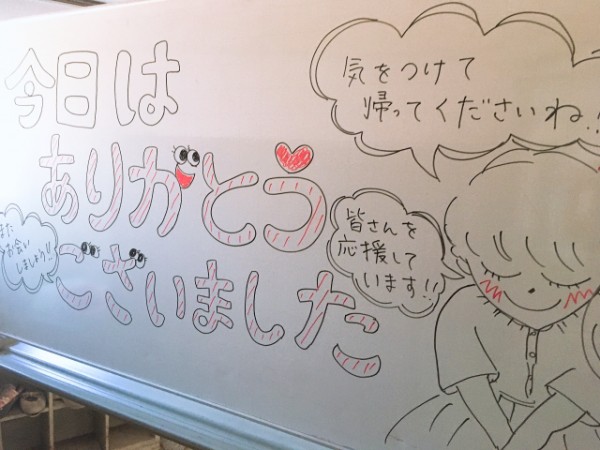 今日は
ありがとう
ございました
気をつけて
帰ってくださいね!!
皆さんを
応援して
います!!
また
お会い
しましょう!!